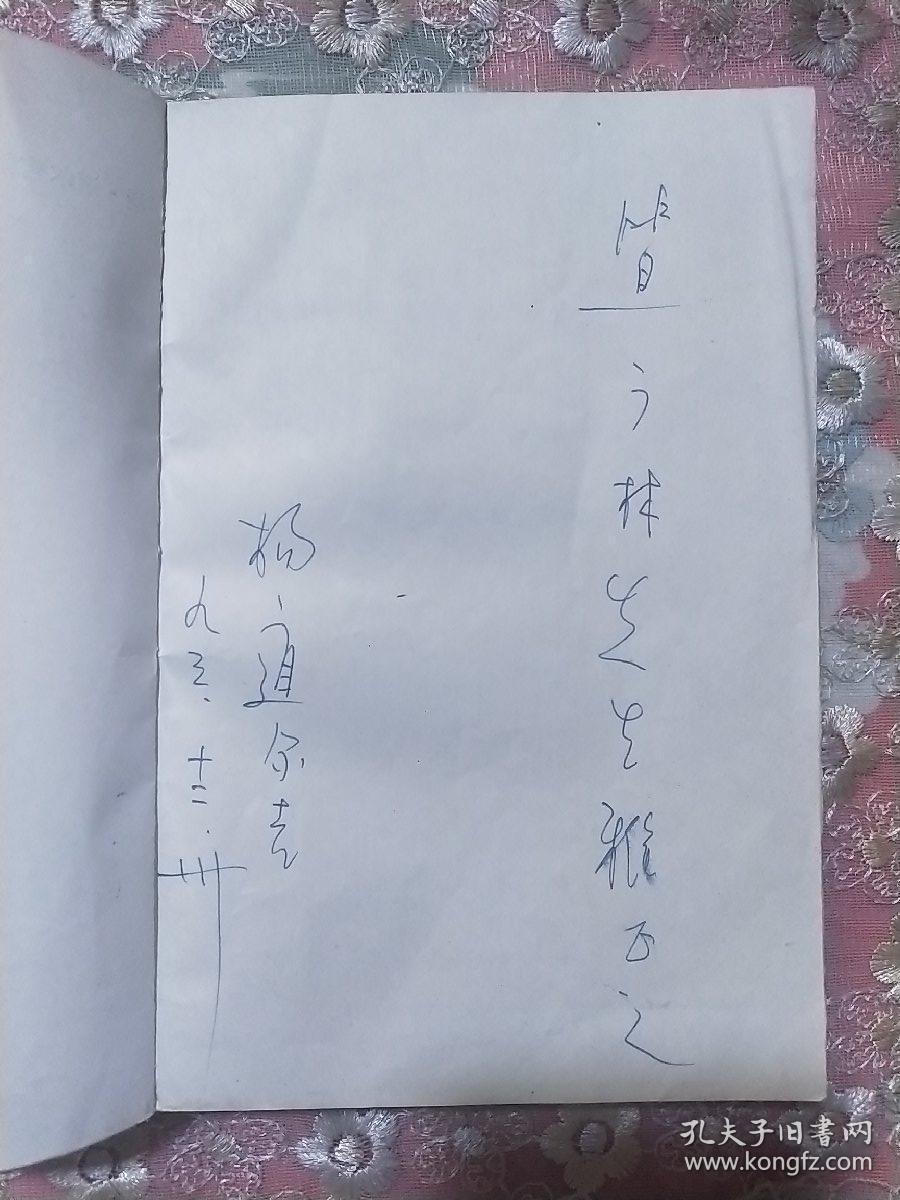 林先生雅正之
杨道尔吉
九三.十二.卅
孔夫子旧書网
www.kongfz.com